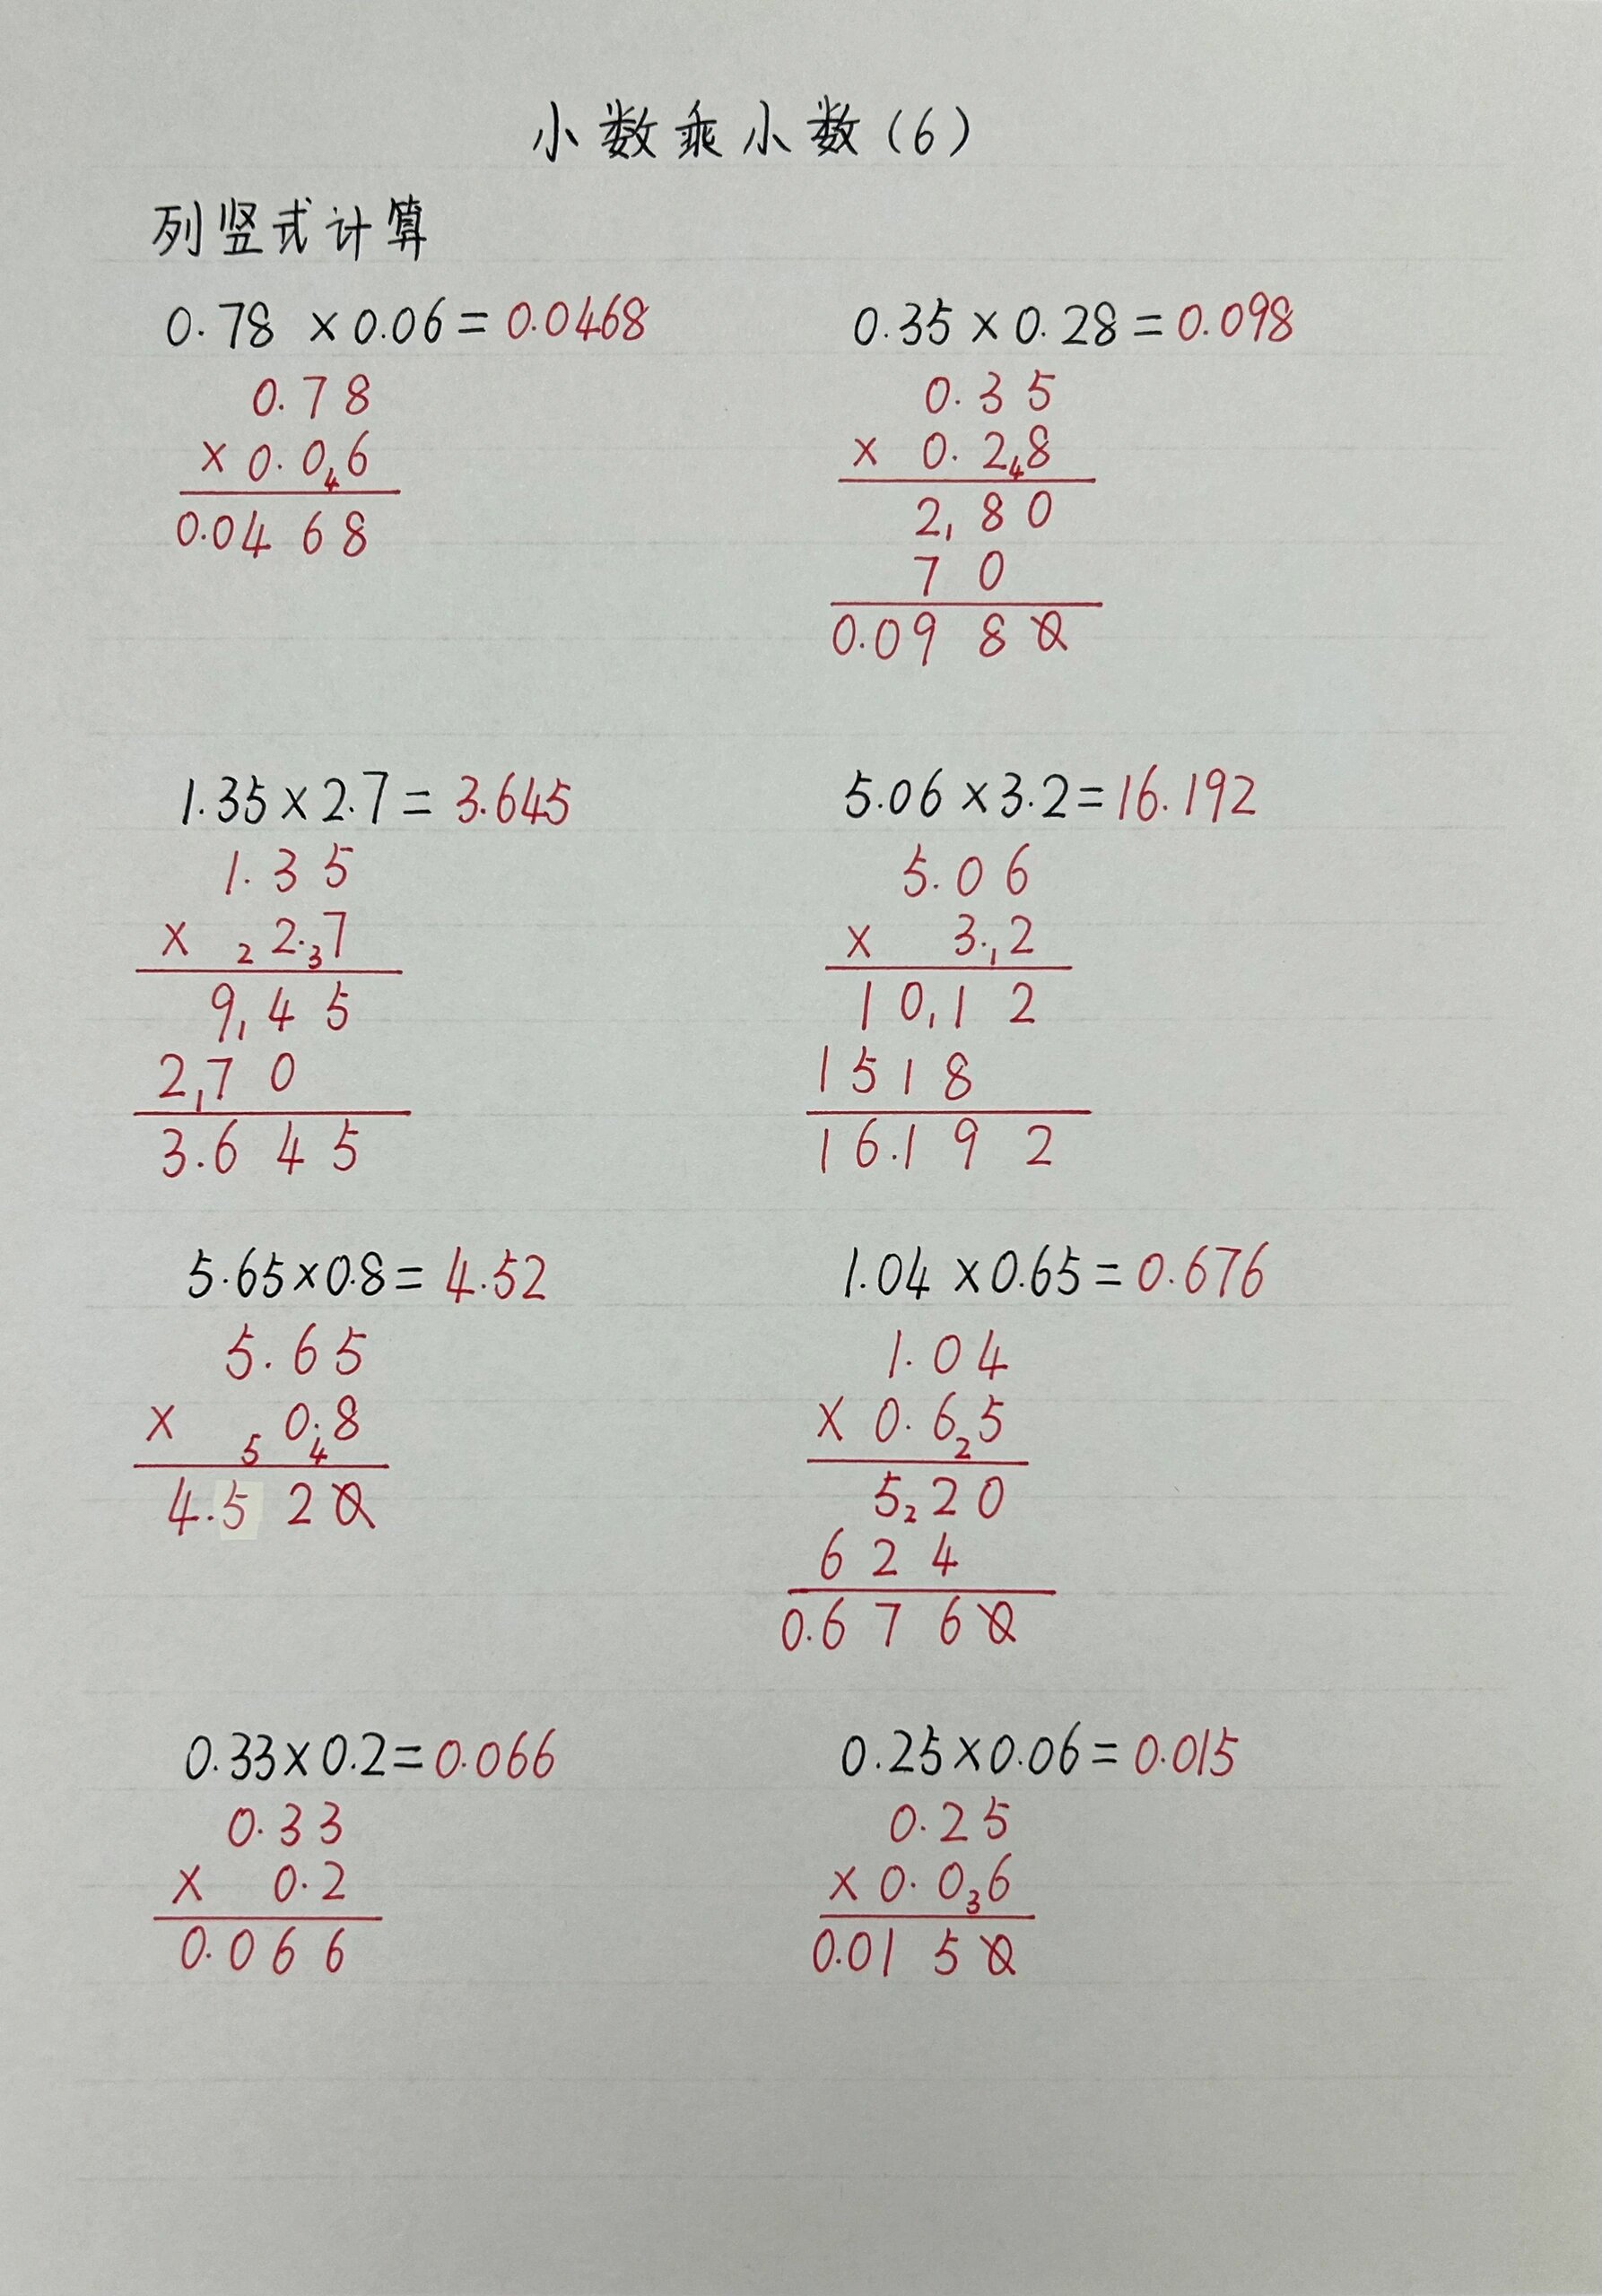 小数乘小数(6)
列竖式计算
0.78 ×0.06=0.0468
0.78
×0.0₄6
0.0468
0.35×0.28=0.098
0.35
× 0.2₄8
2,80
70
0.0980
1.35×2.7=3.645
1.35
× ₂2.₃7
9,45
2,70
3.645
5.06×3.2=16.192
5.06
× 3.,2
10,12
1518
16.192
5.65×0.8=4.52
5.65
× ₅0.₄8
4.520
1.04×0.65=0.676
1.04
×0.6₂5
5₂20
624
0.6760
0.33×0.2=0.066
0.33
× 0.2
0.066
0.25×0.06=0.015
0.25
×0.0₃6
0.0150